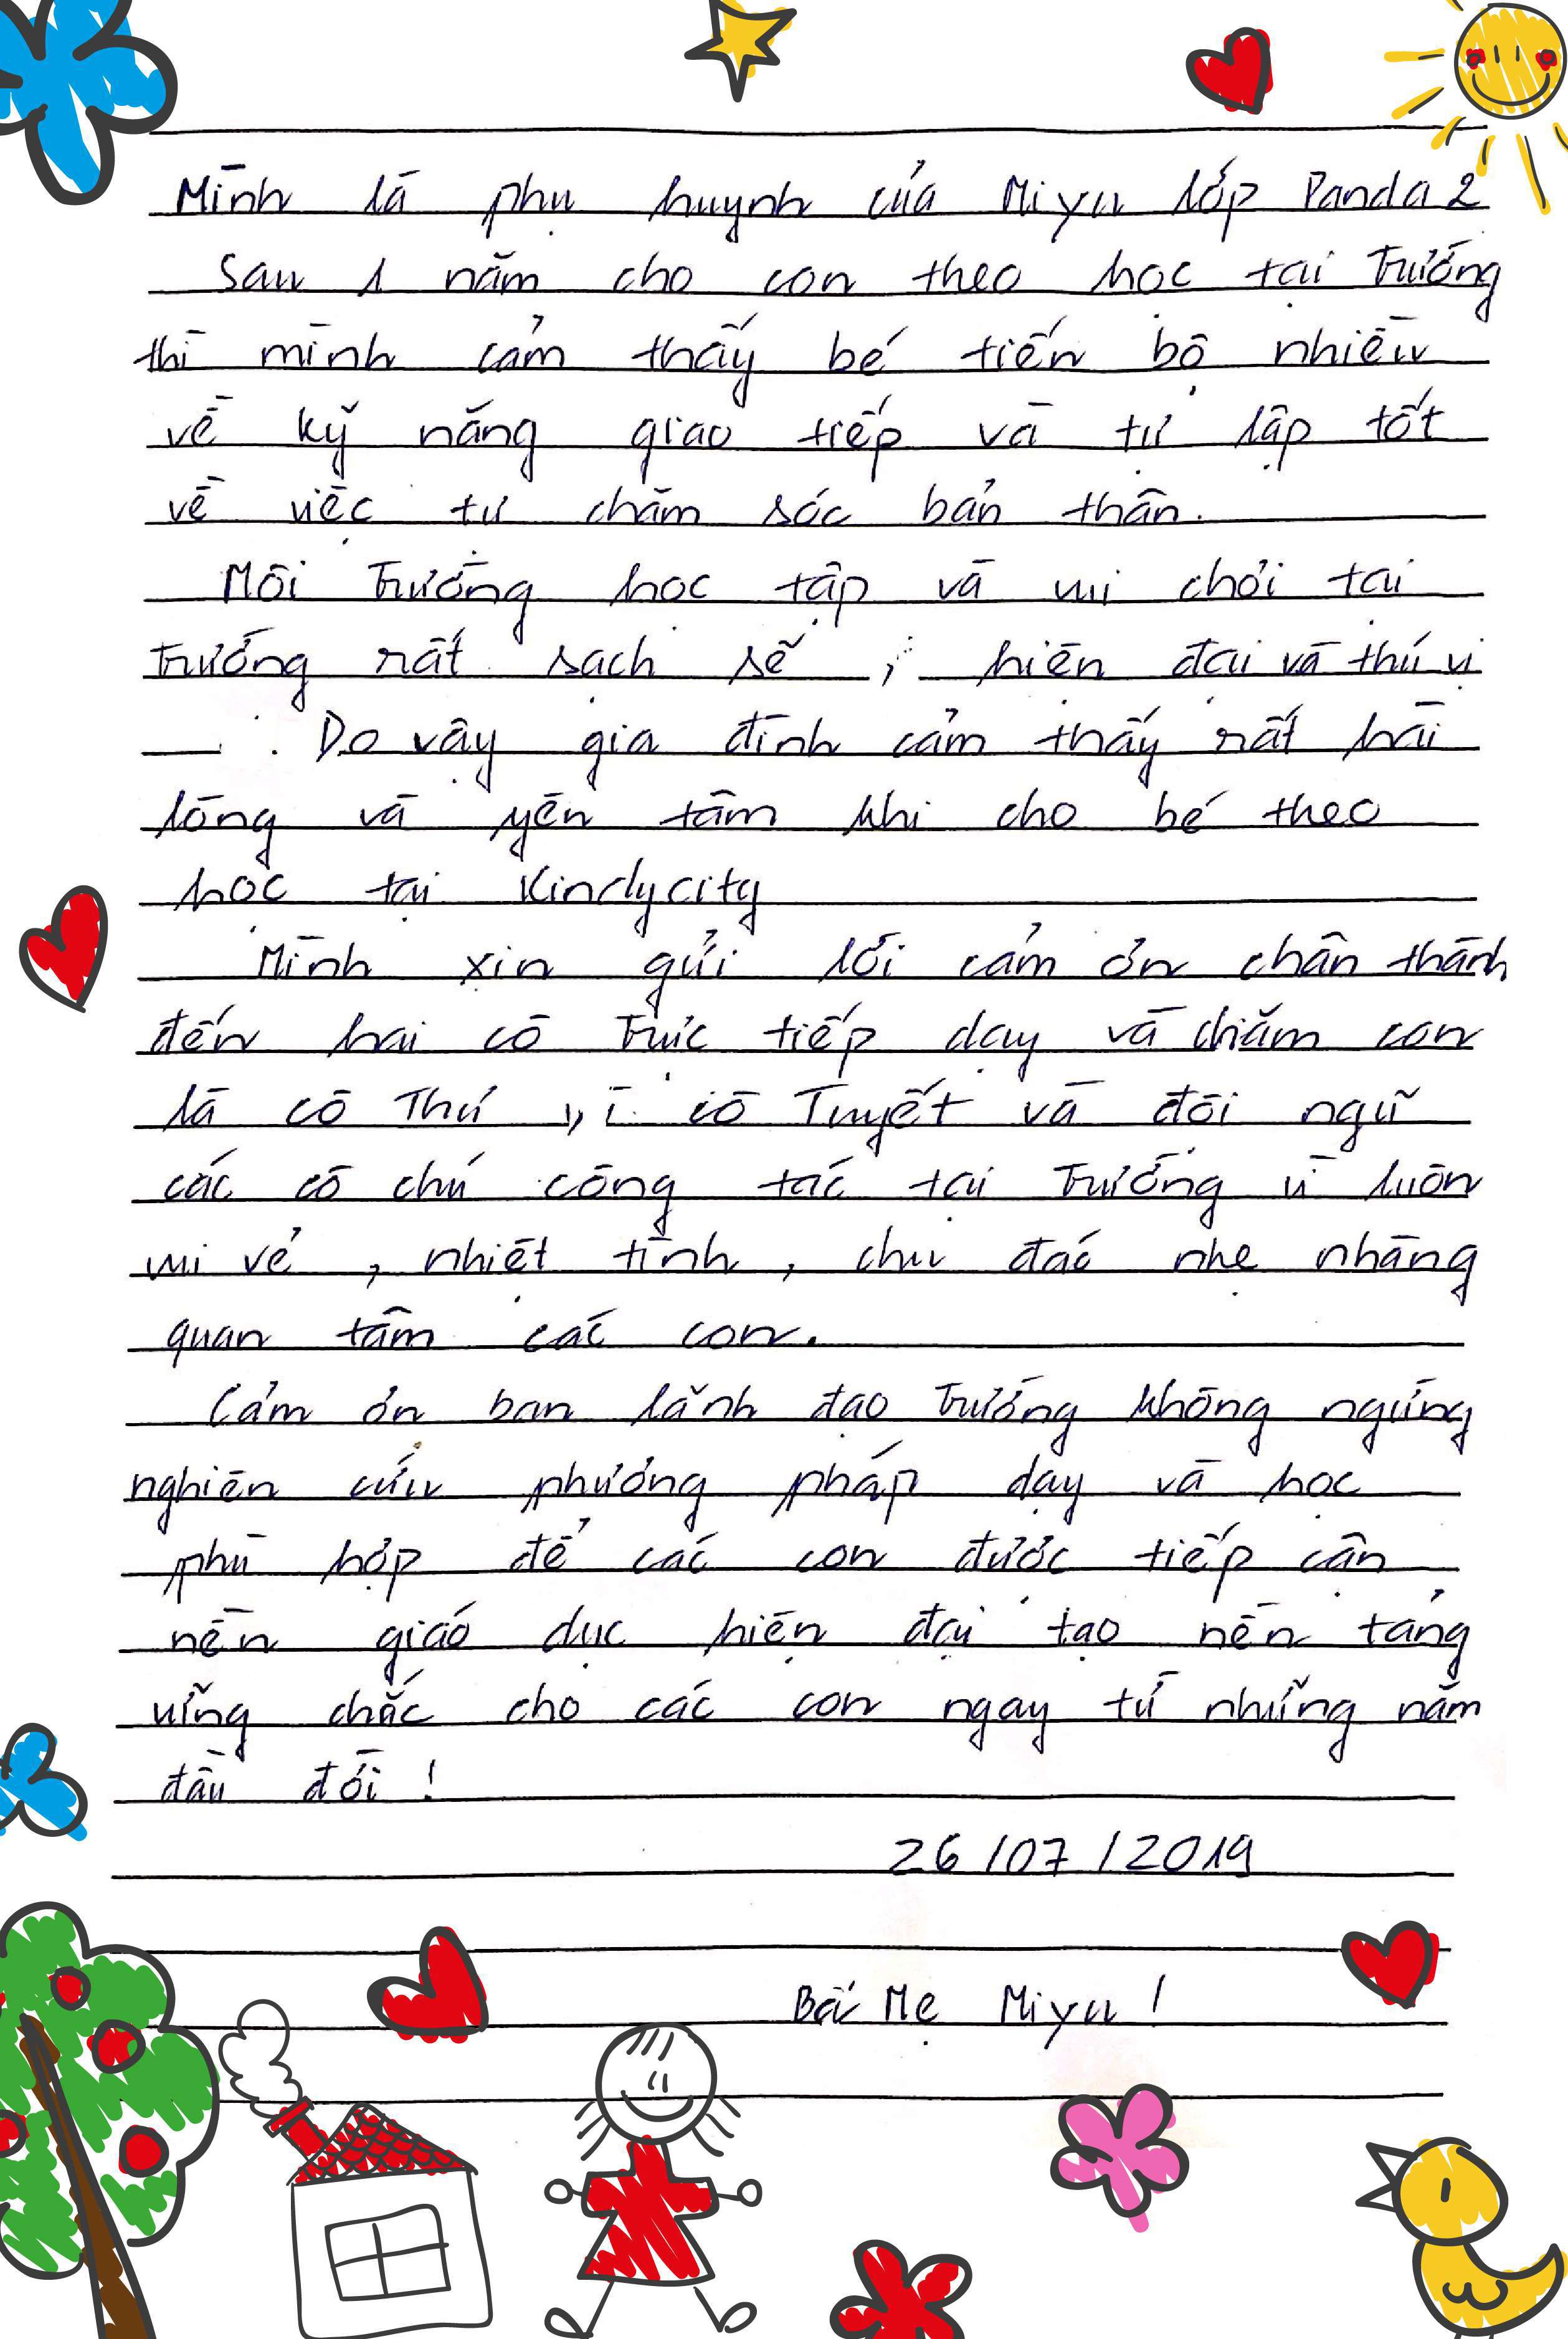 Mình là phụ huynh của Miyu lớp Panda 2
Sau 1 năm cho con theo học tại Trường
thì mình cảm thấy bé tiến bộ nhiều
về kỹ năng giao tiếp và tự lập tốt
về việc tự chăm sóc bản thân.
Môi Trường học tập và vui chơi tại
trường rất sạch sẽ , hiện đại và thú vị
. Do vậy gia đình cảm thấy rất hài
lòng và yên tâm khi cho bé theo
học tại Kindycity
Mình xin gửi lời cảm ơn chân thành
đến hai cô Trực tiếp dạy và chăm con
là cô Thư , cô Tuyết và đội ngũ
các cô chú công tác tại Trường vì luôn
vui vẻ , nhiệt tình , chu đáo nhẹ nhàng
quan tâm các con.
Cảm ơn ban lãnh đạo Trường không ngừng
nghiên cứu phương pháp dạy và học
phù hợp để các con được tiếp cận
nền giáo dục hiện đại tạo nền tảng
vững chắc cho các con ngay từ những năm
đầu đời !
26/07/2019
Ba Mẹ Miyu !